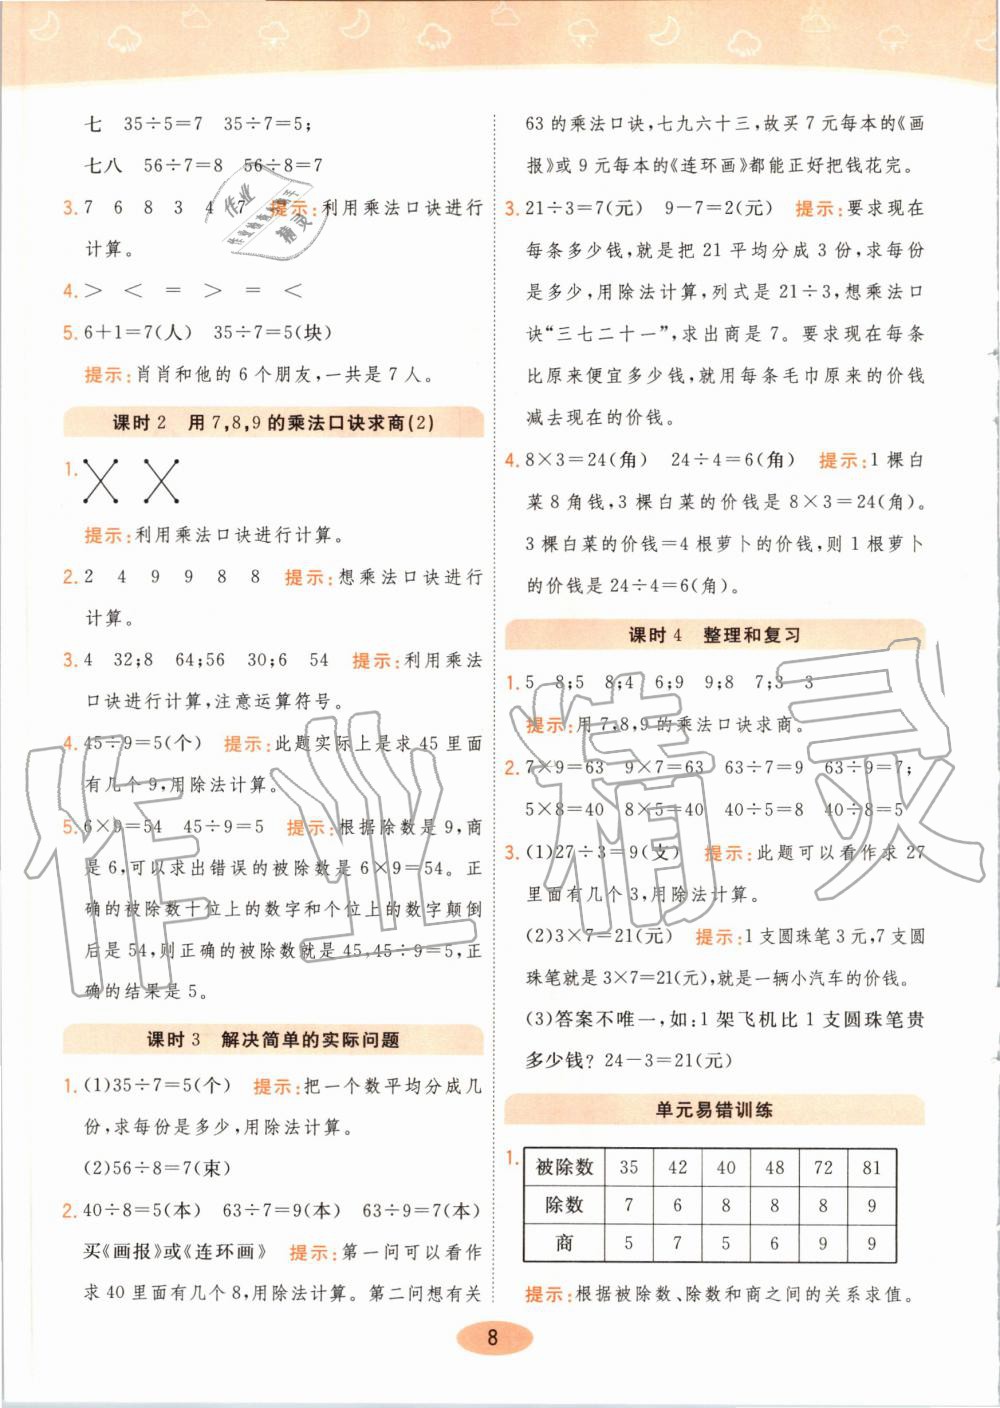 七　35÷5=7　35÷7=5;
七八　56÷7=8　56÷8=7
3. 7　6　8　3　4　7　提示:利用乘法口诀进行
计算。
4. ＞　＜　＝　＞　＝　＜
5. 6+1=7(人)　35÷7=5(块)
提示:肖肖和他的6个朋友,一共是7人。
课时2　用7,8,9的乘法口诀求商(2)
1.
提示:利用乘法口诀进行计算。
2. 2　4　9　9　8　8　提示:想乘法口诀进行
计算。
3. 4　32;8　64;56　30;6　54　提示:利用乘法
口诀进行计算,注意运算符号。
4. 45÷9=5(个)　提示:此题实际上是求45里面
有几个9,用除法计算。
5. 6×9=54　45÷9=5　提示:根据除数是9,商
是6,可以求出错误的被除数是6×9=54。正
确的被除数十位上的数字和个位上的数字颠倒
后是54,则正确的被除数就是45,45÷9=5,正
确的结果是5。
课时3　解决简单的实际问题
1. (1)35÷7=5(个)　提示:把一个数平均分成几
份,求每份是多少,用除法计算。
(2)56÷8=7(束)
2. 40÷8=5(本)　63÷7=9(本)　63÷9=7(本)
买《画报》或《连环画》　提示:第一问可以看作
求40里面有几个8,用除法计算。第二问想有关
63的乘法口诀,七九六十三,故买7元每本的《画
报》或9元每本的《连环画》都能正好把钱花完。
3. 21÷3=7(元)　9-7=2(元)　提示:要求现在
每条多少钱,就是把21平均分成3份,求每份
是多少,用除法计算,列式是21÷3,想乘法口
诀“三七二十一”,求出商是7。要求现在每条
比原来便宜多少钱,就用每条毛巾原来的价钱
减去现在的价钱。
4. 8×3=24(角)　24÷4=6(角)　提示:1棵白
菜8角钱,3棵白菜的价钱是8×3=24(角)。
3棵白菜的价钱=4根萝卜的价钱,则1根萝卜
的价钱是24÷4=6(角)。
课时4　整理和复习
1. 5　8;5　8;4　6;9　9;8　7;3　3
提示:用7,8,9的乘法口诀求商。
2. 7×9=63　9×7=63　63÷7=9　63÷9=7;
5×8=40　8×5=40　40÷5=8　40÷8=5
3. (1)27÷3=9(支)　提示:此题可以看作求27
里面有几个3,用除法计算。
(2)3×7=21(元)　提示:1支圆珠笔3元,7支圆
珠笔就是3×7=21(元),就是一辆小汽车的价钱。
(3)答案不唯一,如:1架飞机比1支圆珠笔贵
多少钱?24-3=21(元)
单元易错训练
1. 被除数　35　42　40　48　72　81
除数　7　6　8　8　8　9
商　5　7　5　6　9　9
提示:根据被除数、除数和商之间的关系求值。
8
作业精灵